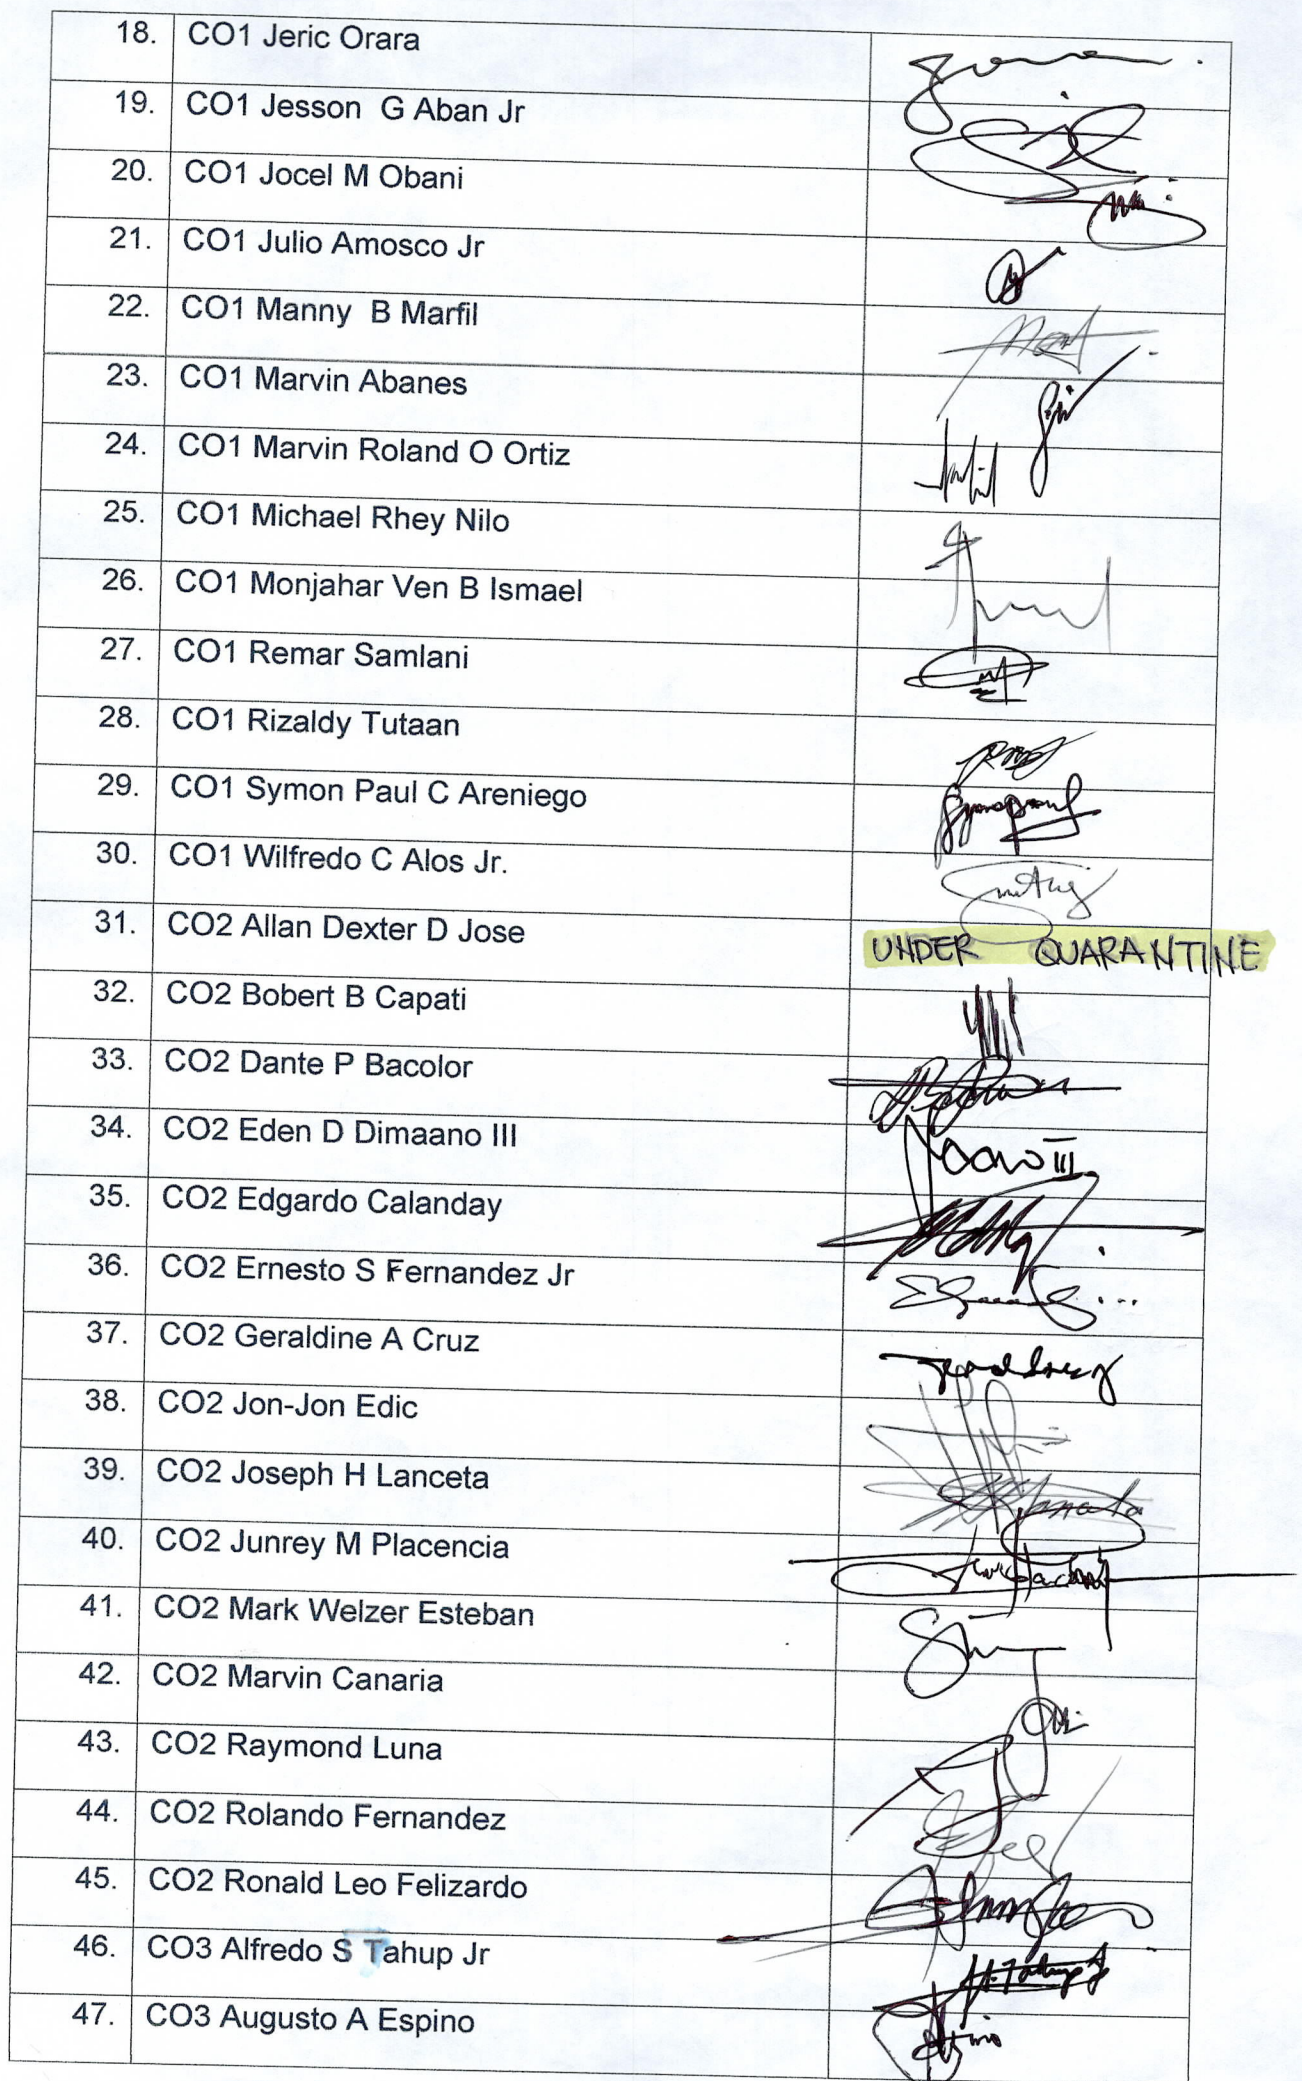 18. CO1 Jeric Orara
19. CO1 Jesson G Aban Jr
20. CO1 Jocel M Obani
21. CO1 Julio Amosco Jr
22. CO1 Manny B Marfil
23. CO1 Marvin Abanes
24. CO1 Marvin Roland O Ortiz
25. CO1 Michael Rhey Nilo
26. CO1 Monjahar Ven B Ismael
27. CO1 Remar Samlani
28. CO1 Rizaldy Tutaan
29. CO1 Symon Paul C Areniego
30. CO1 Wilfredo C Alos Jr.
31. CO2 Allan Dexter D Jose UNDER QUARANTINE
32. CO2 Bobert B Capati
33. CO2 Dante P Bacolor
34. CO2 Eden D Dimaano III
35. CO2 Edgardo Calanday
36. CO2 Ernesto S Fernandez Jr
37. CO2 Geraldine A Cruz
38. CO2 Jon-Jon Edic
39. CO2 Joseph H Lanceta
40. CO2 Junrey M Placencia
41. CO2 Mark Welzer Esteban
42. CO2 Marvin Canaria
43. CO2 Raymond Luna
44. CO2 Rolando Fernandez
45. CO2 Ronald Leo Felizardo
46. CO3 Alfredo S Tahup Jr
47. CO3 Augusto A Espino